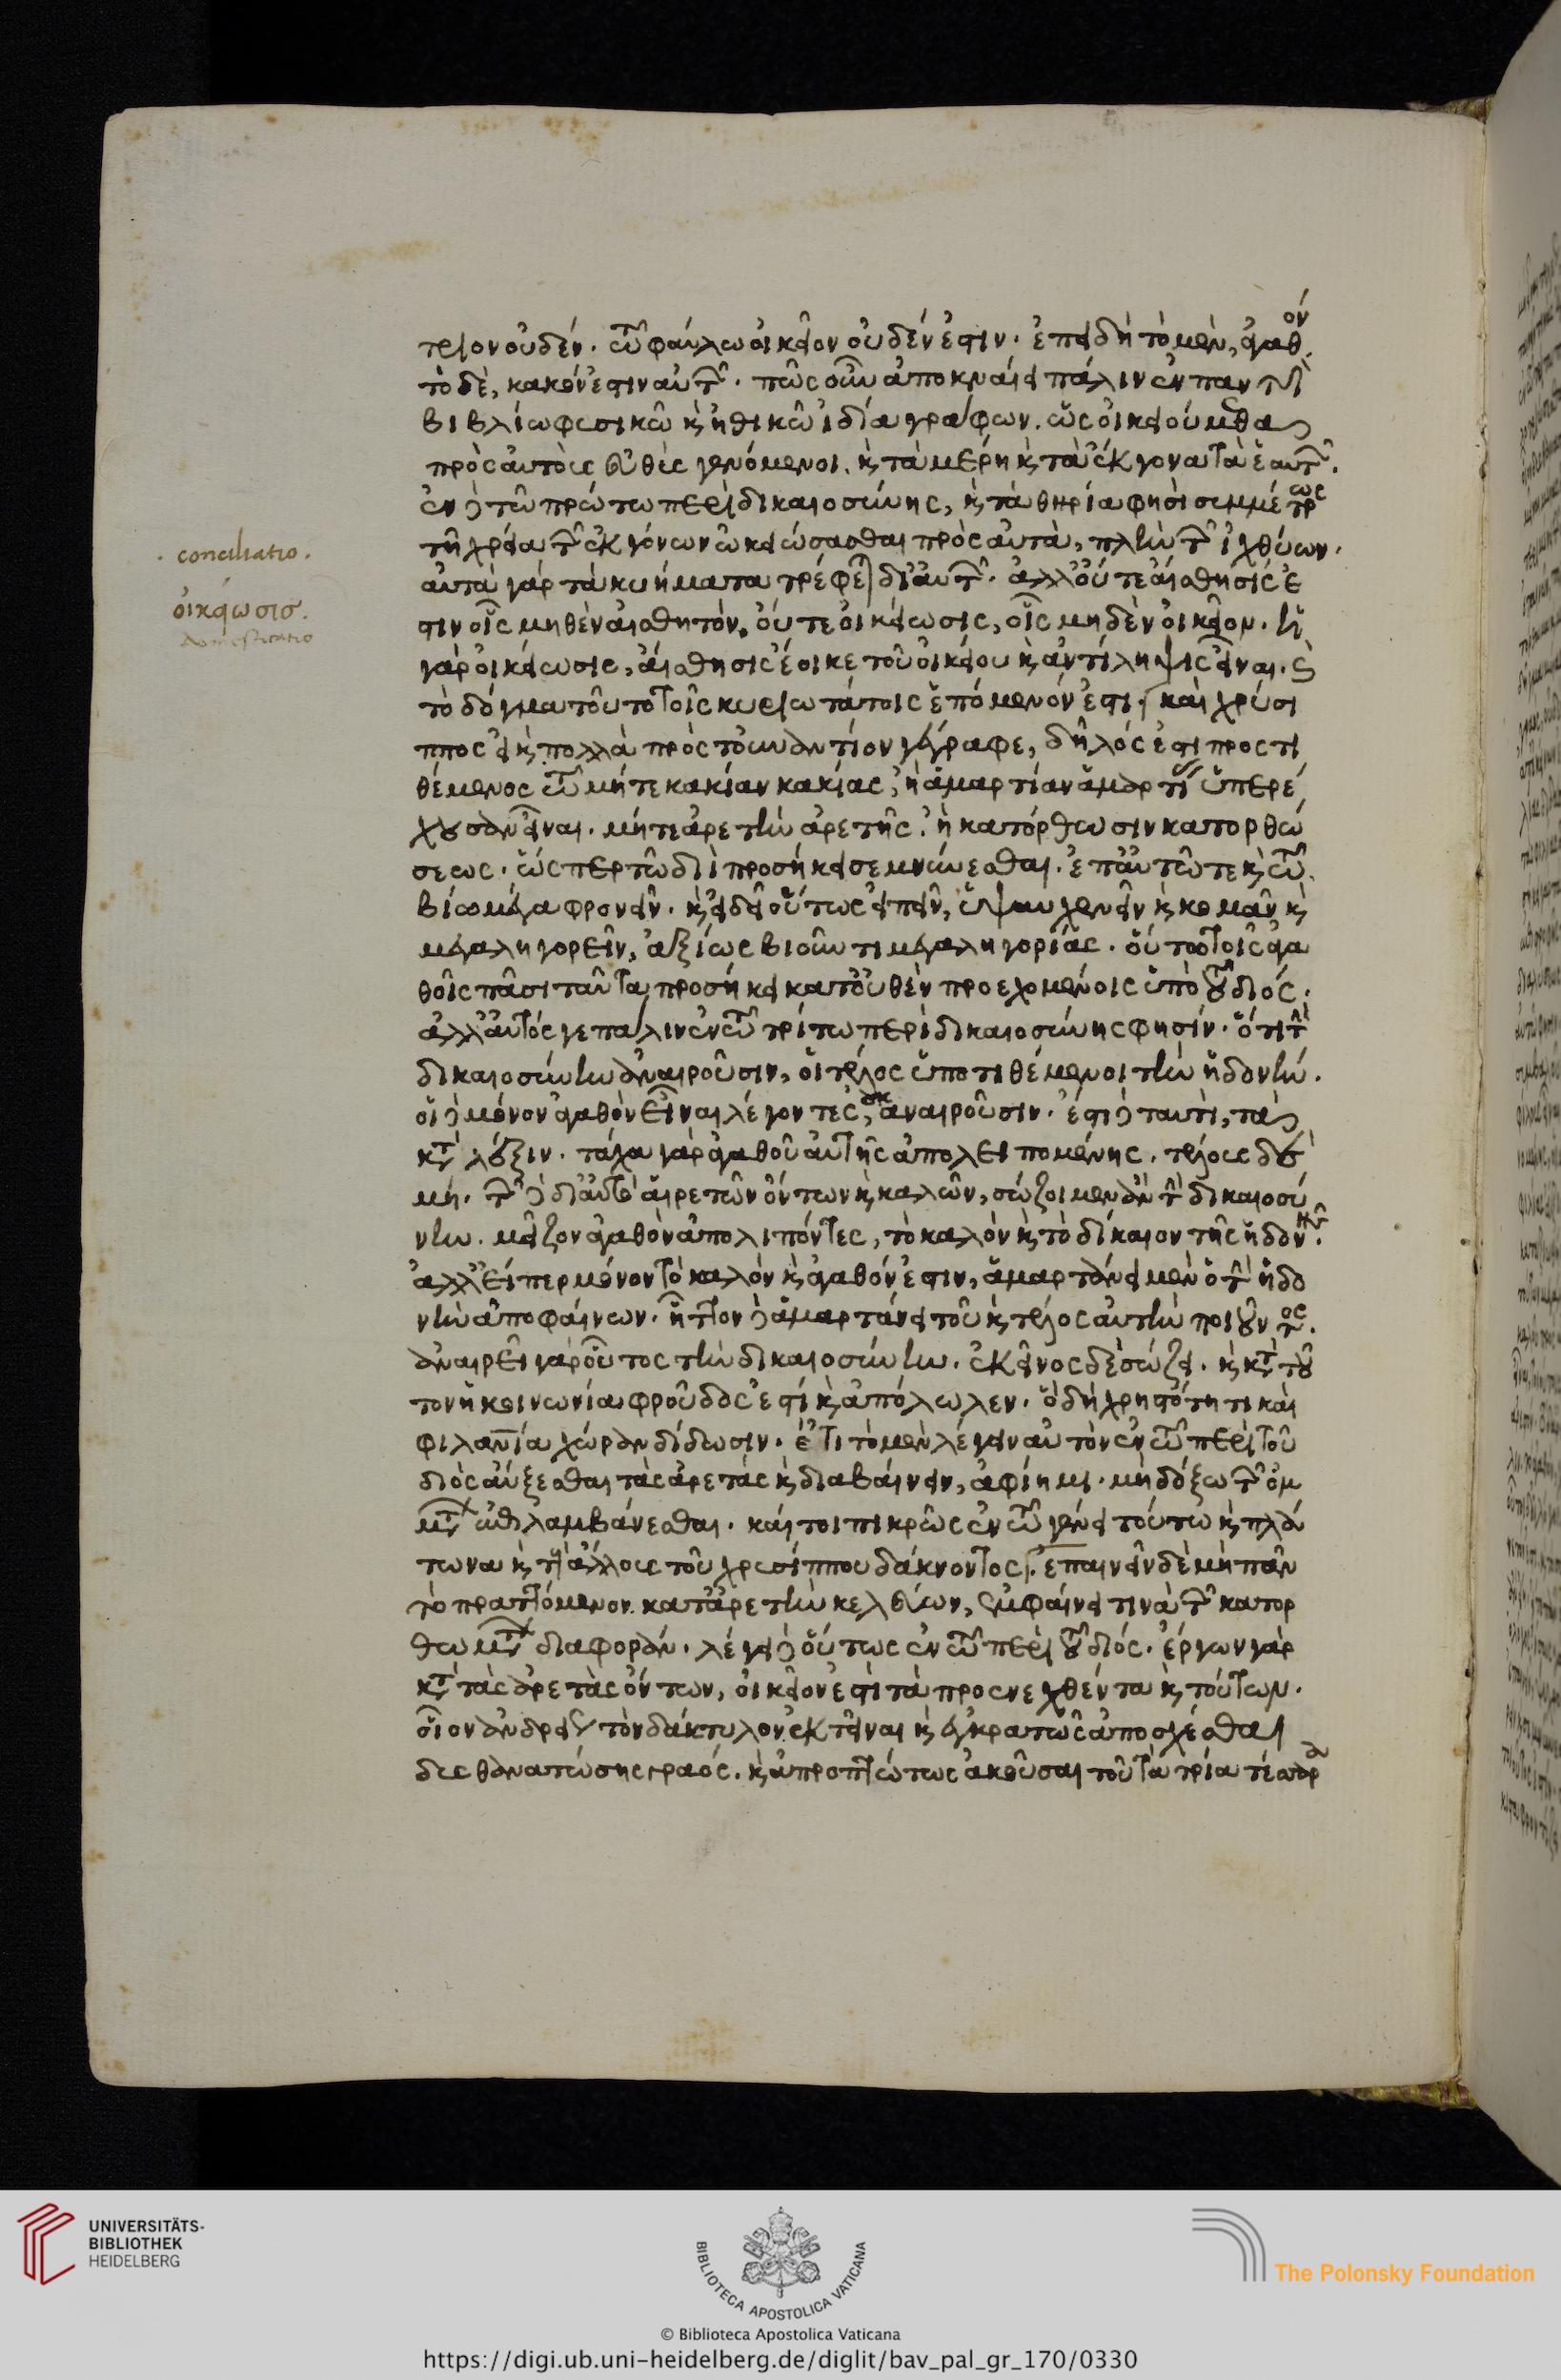 τριον οὐδέν. τῷ φαύλῳ οἰκεῖον οὐδέν ἐστιν. ἐπειδὴ τὸ μὲν, ἀγαθόν
τὸ δὲ, κακόν ἐστιν αὐτῶν. πῶς οὖν ἀποκναίει πάλιν ἐν παντὶ
βιβλίῳ φυσικῷ κ̀ ἠθικῷ ἰδίᾳ γράφων. ὡς οἰκειούμεθα
πρὸς αὑτοὺς εὐθὺς γενόμενοι. κ̀ τὰ μέρη κ̀ τὰ ἔκγονα τὰ ἑαυτῶν.
ἐν δὲ τῷ πρώτῳ περὶ δικαιοσύνης, κ̀ τὰ θηρία φησὶ συμμέτρως
· conciliatio.
τῇ χρείᾳ τῶν ἐκγόνων ὠκειῶσθαι πρὸς αὐτὰ, πλὴν τῶν ἰχθύων.
αὐτὰ γὰρ τὰ κυήματα τρέφεται δι' αὐτῶν. ἀλλ' οὔτε αἴσθησίς ἐ
οἰκείωσισ.
στιν οἷς μηθὲν αἰσθητόν. οὔτε οἰκείωσις, οἷς μηδὲν οἰκεῖον. ἡ
γὰρ οἰκείωσις, αἴσθησις ἔοικε τοῦ οἰκείου κ̀ ἀντίληψις εἶναι. κ̀
τὸ δόγμα τοῦτο τοῖς κυριωτάτοις ἑπόμενόν ἐστι. καὶ χρύσι
ππος εἰ κ̀ πολλὰ πρὸς τοὐναντίον γέγραφε, δῆλός ἐστι προςτι
θέμενος τῷ μήτε κακίαν κακίας, ἢ ἁμαρτίαν ἁμαρτίας ὑπερέ
χουσαν εἶναι. μήτε ἀρετὴν ἀρετῆς. ἢ κατόρθωσιν κατορθώ
σεως. ὥςπερ τῷ διὶ προσήκει σεμνύνεσθαι. ἐπ' αὑτῷ τε κ̀ τῷ
βίῳ μέγα φρονεῖν. κ̀ εἰ δεῖ οὕτως εἰπεῖν, ὑψαυχενεῖν κ̀ κομᾶν κ̀
μεγαληγορεῖν, ἀξίως βιοῦντι μεγαληγορίας. οὕτω τοῖς ἀγα
θοῖς πᾶσι ταῦτα προσήκει κατ' οὐθὲν προεχομένοις ὑπὸ τοῦ διός.
ἀλλ' αὐτός γε πάλιν ἐν τῷ τρίτῳ περὶ δικαιοσύνης φησίν. ὅτι τὴν
δικαιοσύνην ἀναιροῦσιν, οἱ τέλος ὑποτιθέμενοι τὴν ἡδονήν.
οἱ δὲ μόνον ἀγαθὸν εἶναι λέγοντες, οὐκ ἀναιροῦσιν. ἔστι δὲ ταυτὶ, τὰ
κατὰ λέξιν. τάχα γὰρ ἀγαθοῦ αὐτῆς ἀπολειπομένης. τέλους δὲ
μή. τῶν δὲ δι' αὑτὸ αἱρετῶν ὄντων κ̀ καλῶν, σώζοιμεν ἂν τὴν δικαιοσύ
νην. μεῖζον ἀγαθὸν ἀπολιπόντες, τὸ καλὸν κ̀ τὸ δίκαιον τῆς ἡδονῆς.
ἀλλ' εἴπερ μόνον τὸ καλὸν κ̀ ἀγαθόν ἐστιν, ἁμαρτάνει μὲν ὁ τὴν ἡδο
νὴν ἀποφαίνων. ἧττον δὲ ἁμαρτάνει τοῦ κ̀ τέλος αὐτὴν ποιοῦντος.
ἀναιρεῖ γὰρ οὗτος τὴν δικαιοσύνην. ἐκεῖνος δὲ σώζει. κ̀ κατὰ τοῦ
τον ἡ κοινωνία φροῦδός ἐστι κ̀ ἀπόλωλεν. ὁ δὴ χρηστότητι καὶ
φιλανθρωπίᾳ χώραν δίδωσιν. ἔτι τὸ μὲν λέγειν αὐτὸν ἐν τῷ περὶ τοῦ
διὸς αὔξεσθαι τὰς ἀρετὰς κ̀ διαβαίνειν, ἀφίημι. μὴ δόξω τῶν ὀνο
μάτων ἐπιλαμβάνεσθαι. καίτοι πικρῶς ἐν τῷ γένει τούτῳ κ̀ πλά
τωνα κ̀ τοὺς ἄλλους τοῦ χρυσίππου δάκνοντος. ἐπαινεῖν δὲ μὴ πᾶν
τὸ πραττόμενον κατ' ἀρετὴν κελεύων, ἐμφαίνει τινὰ τῶν κατορ
θωμάτων διαφοράν. λέγει δὲ οὕτως ἐν τῷ περὶ τοῦ διός. ἔργων γὰρ
κατὰ τὰς ἀρετὰς ὄντων, οἰκεῖόν ἐστι τὰ προςνεχθέντα κ̀ τούτων.
οἷον ἀνδρείως τὸν δάκτυλον ἐκτεῖναι κ̀ ἐγκρατῶς ἀποσχέσθαι
δυςθανατώσης γραός. κ̀ ἀπροπτώτως ἀκοῦσαι τοῦ τὰ τρία τέσσαρα
UNIVERSITÄTS-
BIBLIOTHEK
HEIDELBERG
BIBLIOTECA APOSTOLICA VATICANA
The Polonsky Foundation
© Biblioteca Apostolica Vaticana
https://digi.ub.uni-heidelberg.de/diglit/bav_pal_gr_170/0330